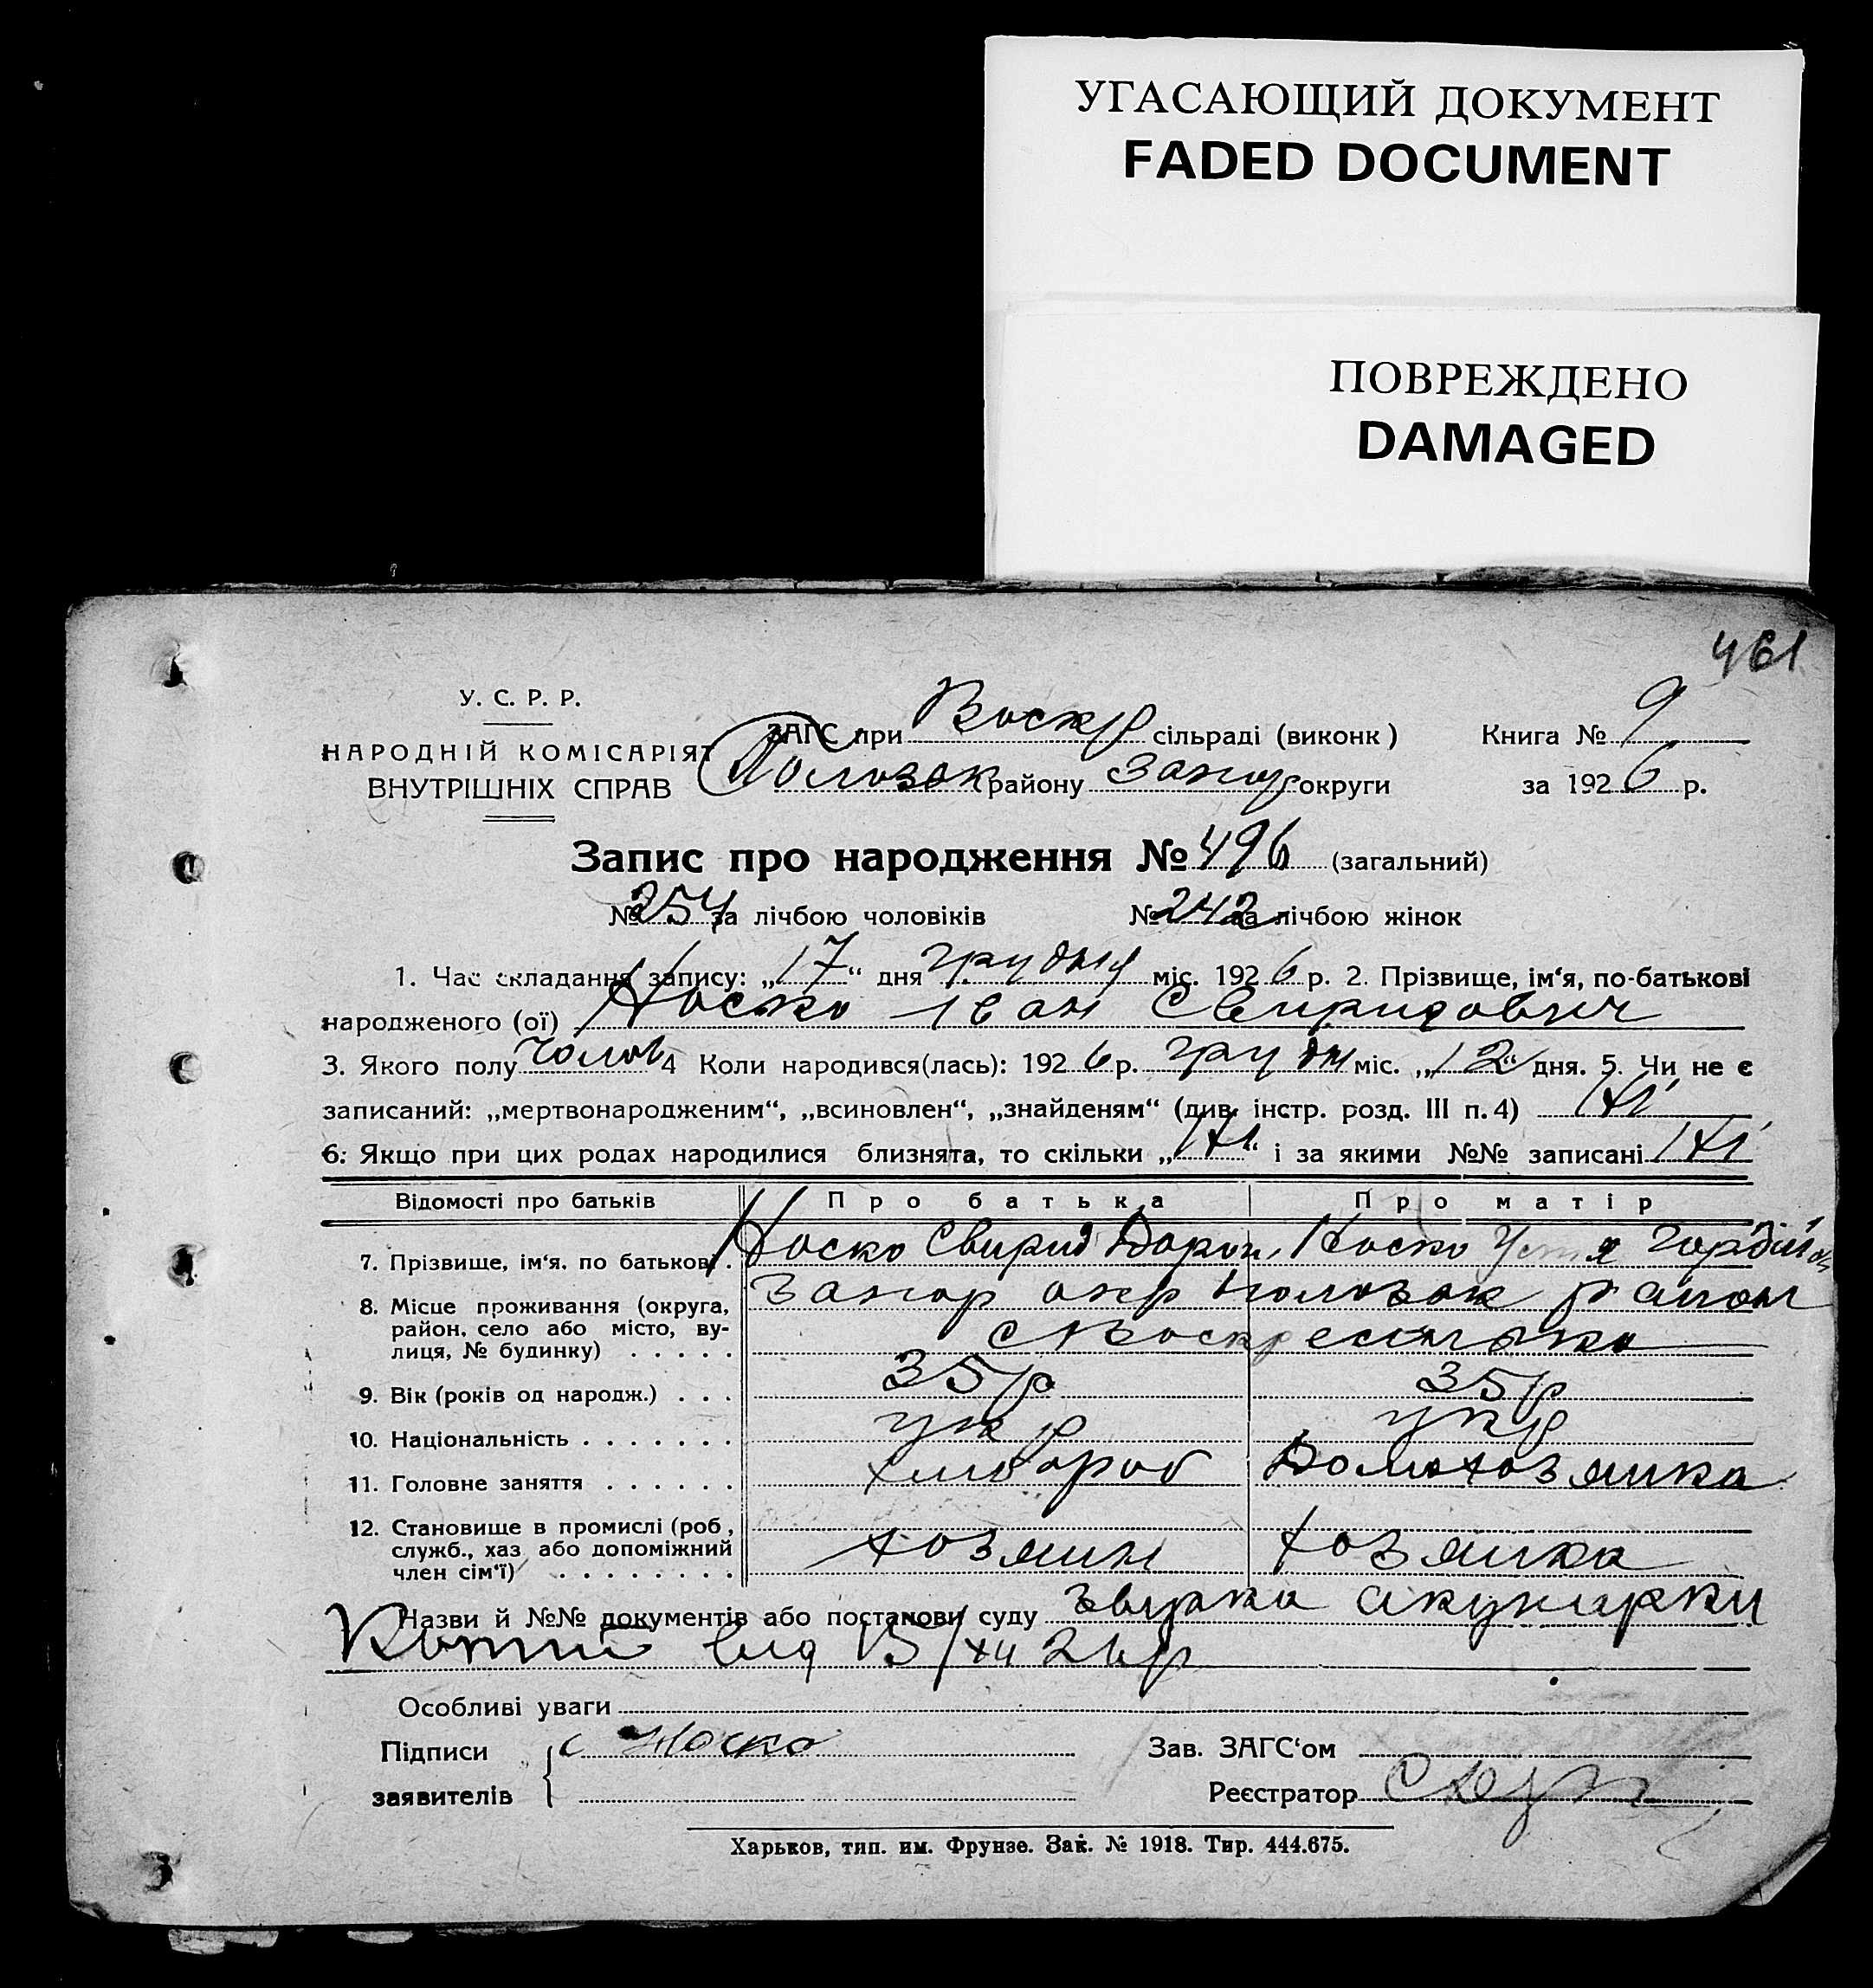 УГАСАЮЩИЙ ДОКУМЕНТ
FADED DOCUMENT
ПОВРЕЖДЕНО
DAMAGED
461
У. С. Р. Р.
НАРОДНІЙ КОМІСАРІЯТ
ВНУТРІШНІХ СПРАВ
ЗАГС при Воскр сільраді (виконк) Книга № 9
Пологок району Запор округи за 1926 р.
Запис про народження № 496 (загальний)
№ 254 за лічбою чоловіків № 242 за лічбою жінок
1. Час складання запису: „17“ дня грудня міс. 1926 р. 2. Прізвище, ім‘я, по-батькові
народженого (ої) Носко Іван Свиридович
3. Якого полу чолов 4 Коли народився(лась): 1926 р. грудн міс. „12“ дня. 5. Чи не є
записаний: „мертвонародженим“, „всиновлен“, „знайденям“ (див. інстр. розд. III п. 4) ні
6. Якщо при цих родах народилися близнята, то скільки „ні“ і за якими №№ записані ні
Відомості про батьків Про батька Про матір
7. Прізвище, ім‘я, по батькові. Носко Свирид Носко Устя Гордіїв
8. Місце проживання (округа, район, село або місто, ву-
лиця, № будинку) . . . . . Запор окр район
с Воскресенка
9. Вік (років од народж.) . . . 35 р 35 р
10. Національність . . . . . . . укр укр
11. Головне заняття . . . . . . хлібороб Домохозяика
12. Становище в промислі (роб, служб., хаз або допоміжний
член сім‘ї) . . . . . . . . хозяин хозяика
Назви й №№ документів або постанови суду акушерки
від 15/XII 26 р
Особливі уваги
Підписи с Носко Зав. ЗАГС‘ом
заявителів Реєстратор
Харьков, тип. им. Фрунзе. Зак. № 1918. Тир. 444.675.